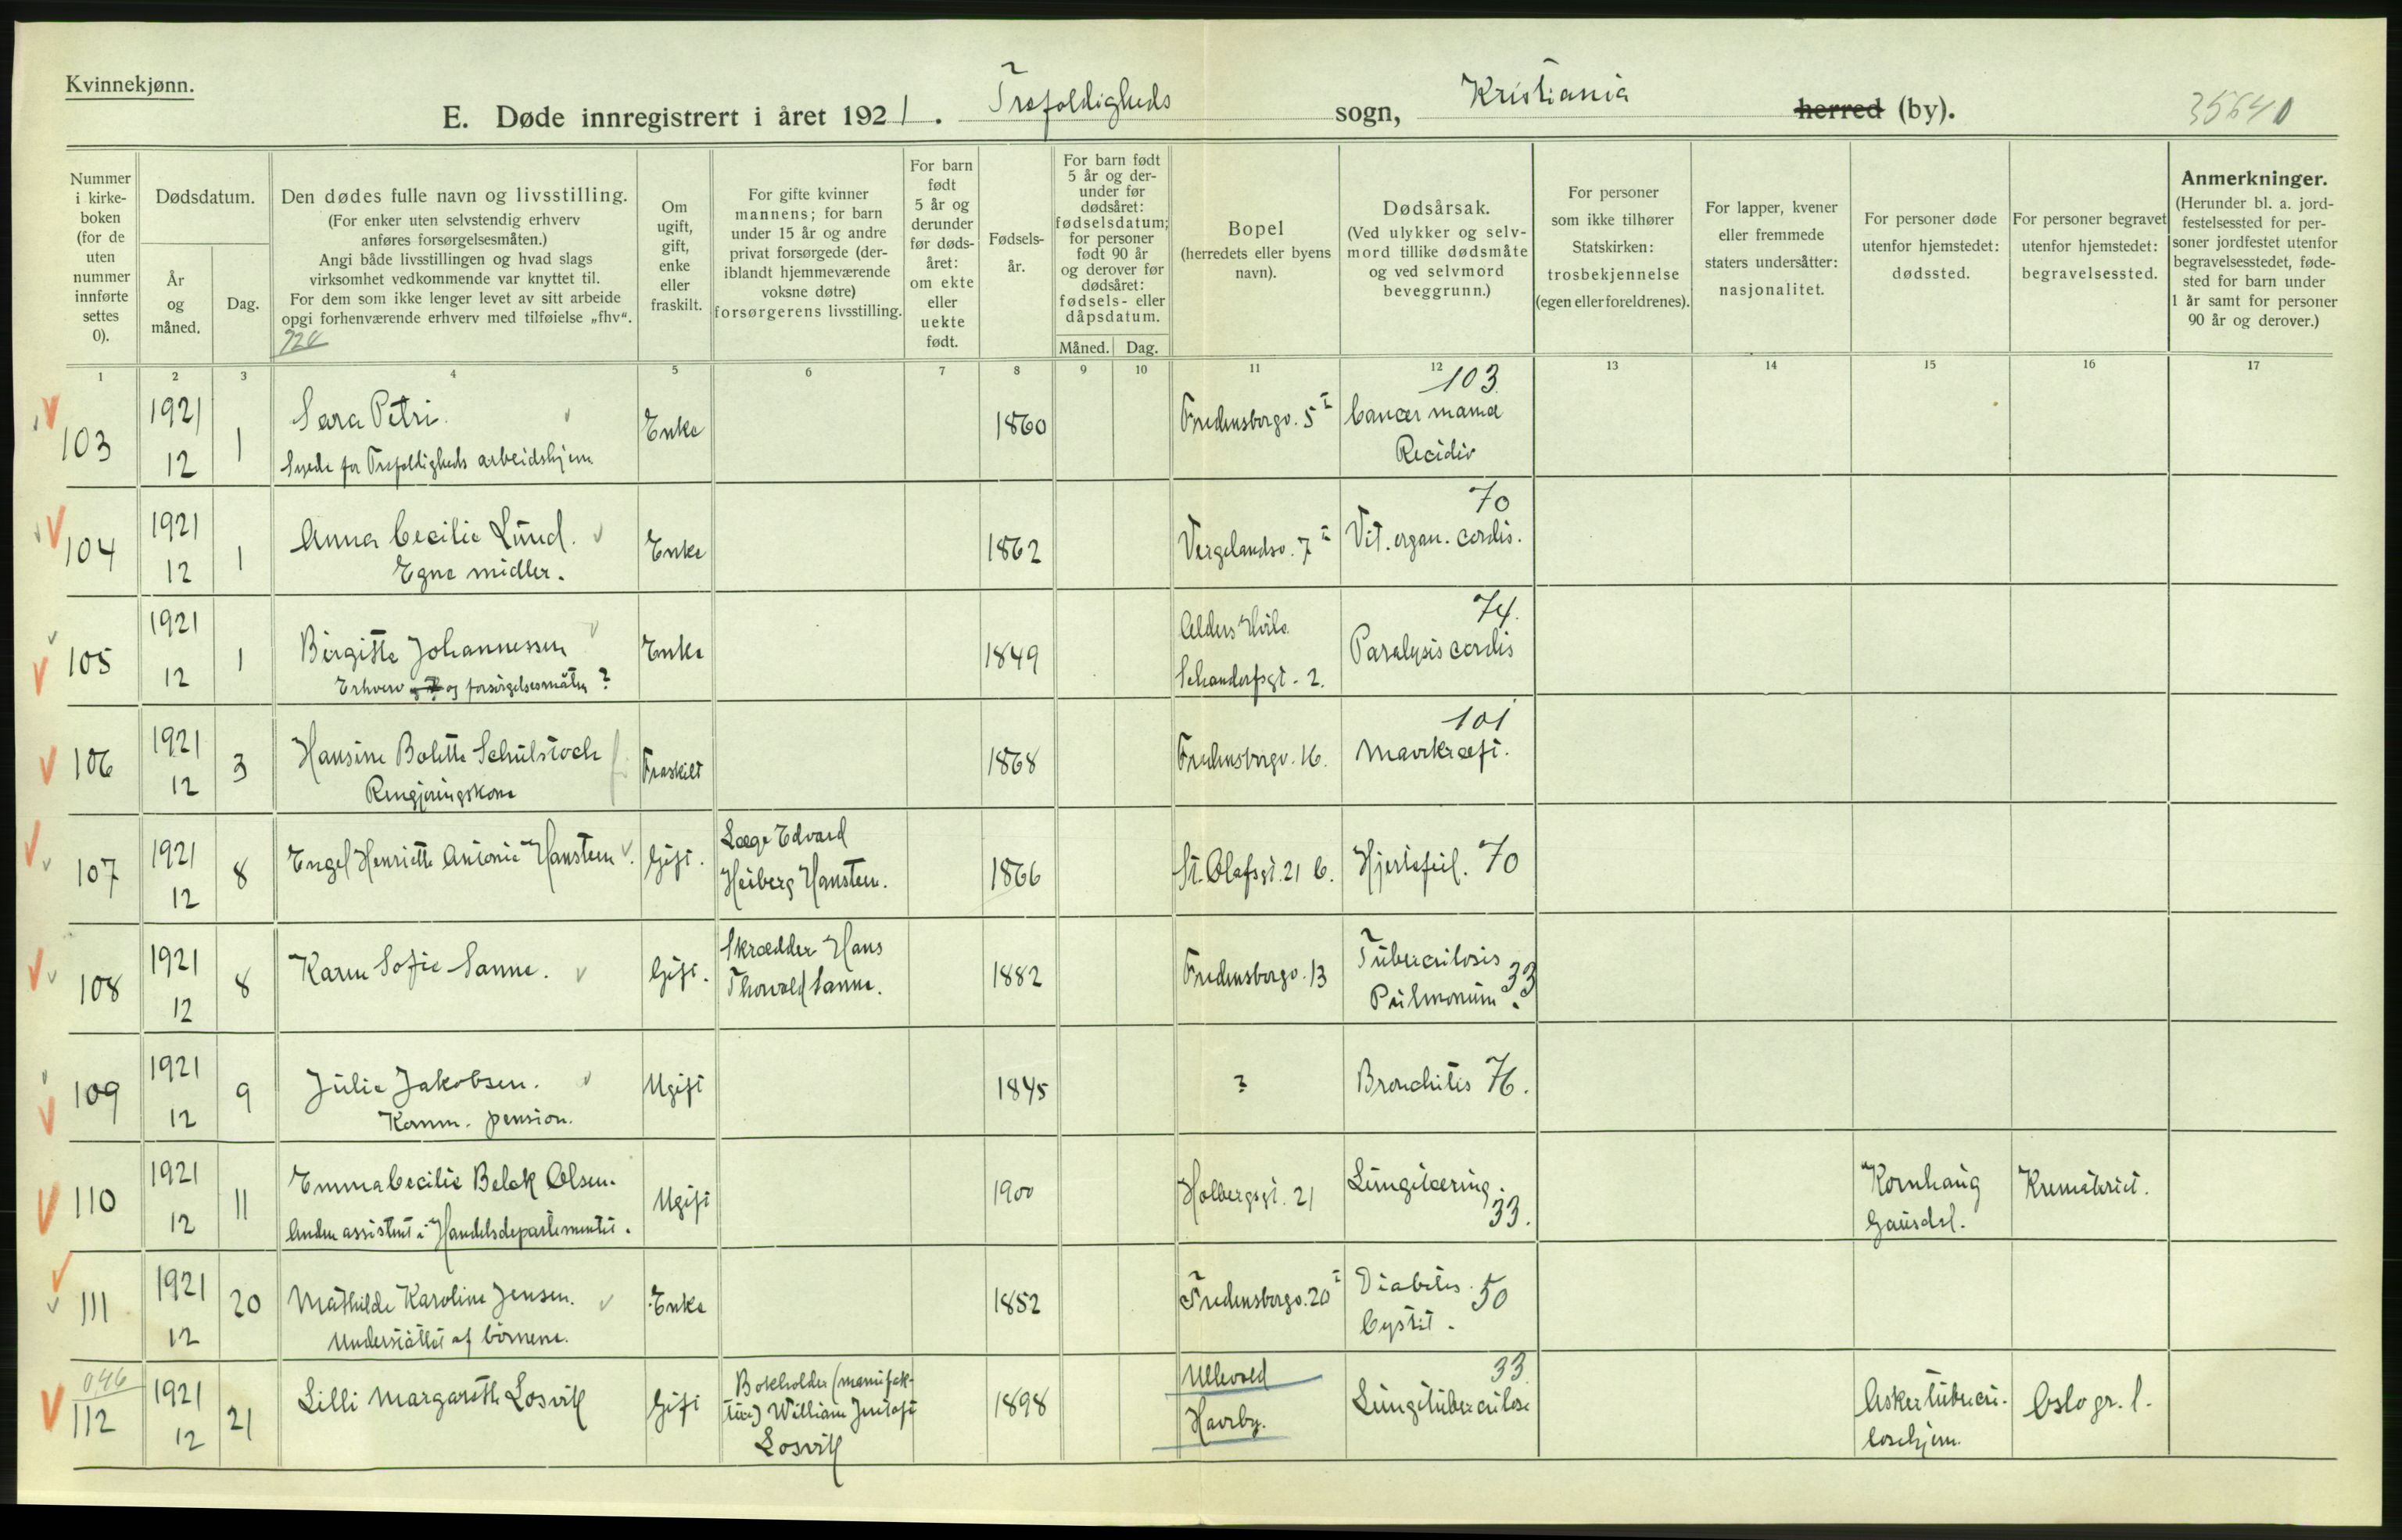 Kvinnekjønn.
E. Døde innregistrert i året 1921. Trefoldigheds sogn, Kristiania herred (by).
35640
Nummer i kirke-boken (for de uten nummer innførte settes 0).
Dødsdatum.
År og måned.
Dag.
Den dødes fulle navn og livsstilling.
(For enker uten selvstendig erhverv
anføres forsørgelsesmåten.)
Angi både livsstillingen og hvad slags
virksomhet vedkommende var knyttet til.
For dem som ikke lenger levet av sitt arbeide
opgi forhenværende erhverv med tilføielse „fhv“.
Om ugift, gift, enke eller fraskilt.
For gifte kvinner
mannens; for barn
under 15 år og andre
privat forsørgede (der-
iblandt hjemmeværende
voksne døtre)
forsørgerens livsstilling.
For barn
født
5 år og
derunder
før døds-
året:
om ekte
eller
uekte
født.
Fødsels-
år.
For barn født
5 år og der-
under før
dødsåret:
fødselsdatum;
for personer
født 90 år
og derover før
dødsåret:
fødsels- eller
dåpsdatum.
Måned. Dag.
Bopel
(herredets eller byens
navn).
Dødsårsak.
(Ved ulykker og selv-
mord tillike dødsmåte
og ved selvmord
beveggrunn.)
For personer
som ikke tilhører
Statskirken:
trosbekjennelse
(egen eller foreldrenes).
For lapper, kvener
eller fremmede
staters undersåtter:
nasjonalitet.
For personer døde
utenfor hjemstedet:
dødssted.
For personer begravet
utenfor hjemstedet:
begravelsessted.
Anmerkninger.
(Herunder bl. a. jord-
festelsessted for per-
soner jordfestet utenfor
begravelsesstedet, føde-
sted for barn under
1 år samt for personer
90 år og derover.)
1 2 3 4 5 6 7 8 9 10 11 12 13 14 15 16 17
103 1921 12 1 Sara Petri. Enke 1860 Fredensborgv. 5 I 103 Cancer mama
Syede for Trefoldigheds arbeidshjem Recidiv
104 1921 12 1 Anna Cecilie Lund. Enke 1862 Vergelandsv. 7 I 70 Vit. organ. cordis.
Egne midler.
105 1921 12 1 Birgitte Johannessen Enke 1849 Alders Hvile 74. Paralysis cordis
Erhverv og forsørgelsesmåten? Schandorfsgt. 2.
106 1921 12 3 Hansine Bolette Schulstock Fraskilt 1868 Fredensborgv. 16. 101 Mavekræft.
Rengjøringskone
107 1921 12 8 Engel Henriette Antonie Hansteen. Gift. Læge Edvard
Heiberg Hansteen. 1866 St. Olafsgt. 21 C. Hjertefeil. 70
108 1921 12 8 Karen Sofie Sanne. Gift. Skrædder Hans
Thorvald Sanne. 1882 Fredensborgv. 13 Tuberculosis
Pulmonum. 33
109 1921 12 9 Julie Jakobsen. Ugift 1845 ? Bronchitis 76.
Komm. pension.
110 1921 12 11 Emma Cecilie Belck Olsen. Ugift 1900 Holbergsgt. 21 Lungetæring. 33. Kornhaug Krematoriet.
Anden assistent i Handelsdepartementet. Gausdal.
111 1921 12 20 Mathilde Karoline Jensen. Enke 1852 Fredensborgv. 20 I Diabetes. 50
Understøttet af børnene. Cystit.
046
112 1921 12 21 Lilli Margareth Losvik Gift Bokholder (manufak-
tur) William Justoft
Losvik 1898 Ullevold
Haveby. 33 Lungetuberculose Asker tubercu-
losehjem. Oslo gr. l.